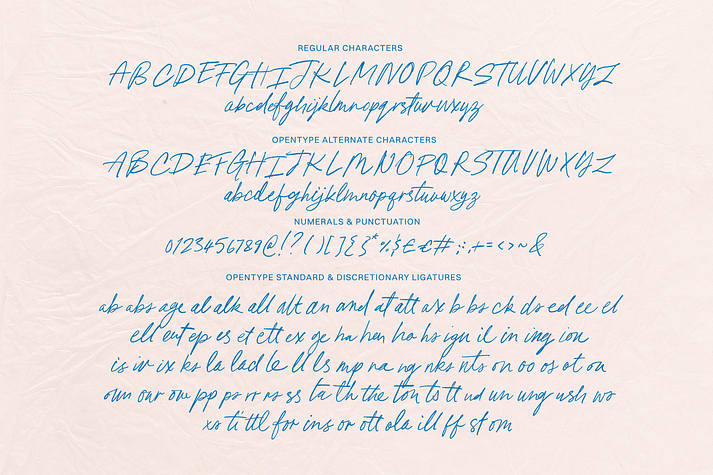 REGULAR CHARACTERS
ABCDEFGHIJKLMNOPQRSTUVWXYZ
abcdefghijklmnopqrstuvwxyz
OPENTYPE ALTERNATE CHARACTERS
ABCDEFGHIJKLMNOPQRSTUVWXYZ
abcdefghijklmnopqrstuvwxyz
NUMERALS & PUNCTUATION
0123456789@!?()[]{}*%$£€#:;,+=<>~&
OPENTYPE STANDARD & DISCRETIONARY LIGATURES
ab abs age al alk all alt an and at att ax b bs ck ds ed ee el
ell ent ep es et ett ex ge ha hen ho hs ign il in ing ion
is iv ix ks la lad le ll ls mp na ng nks nts on oo os ot ou
our ow pp ps rr rs ss ta th the ton ts tt ud un ung ush ws
xs ti ttl for ins or ott ola ill ff st om